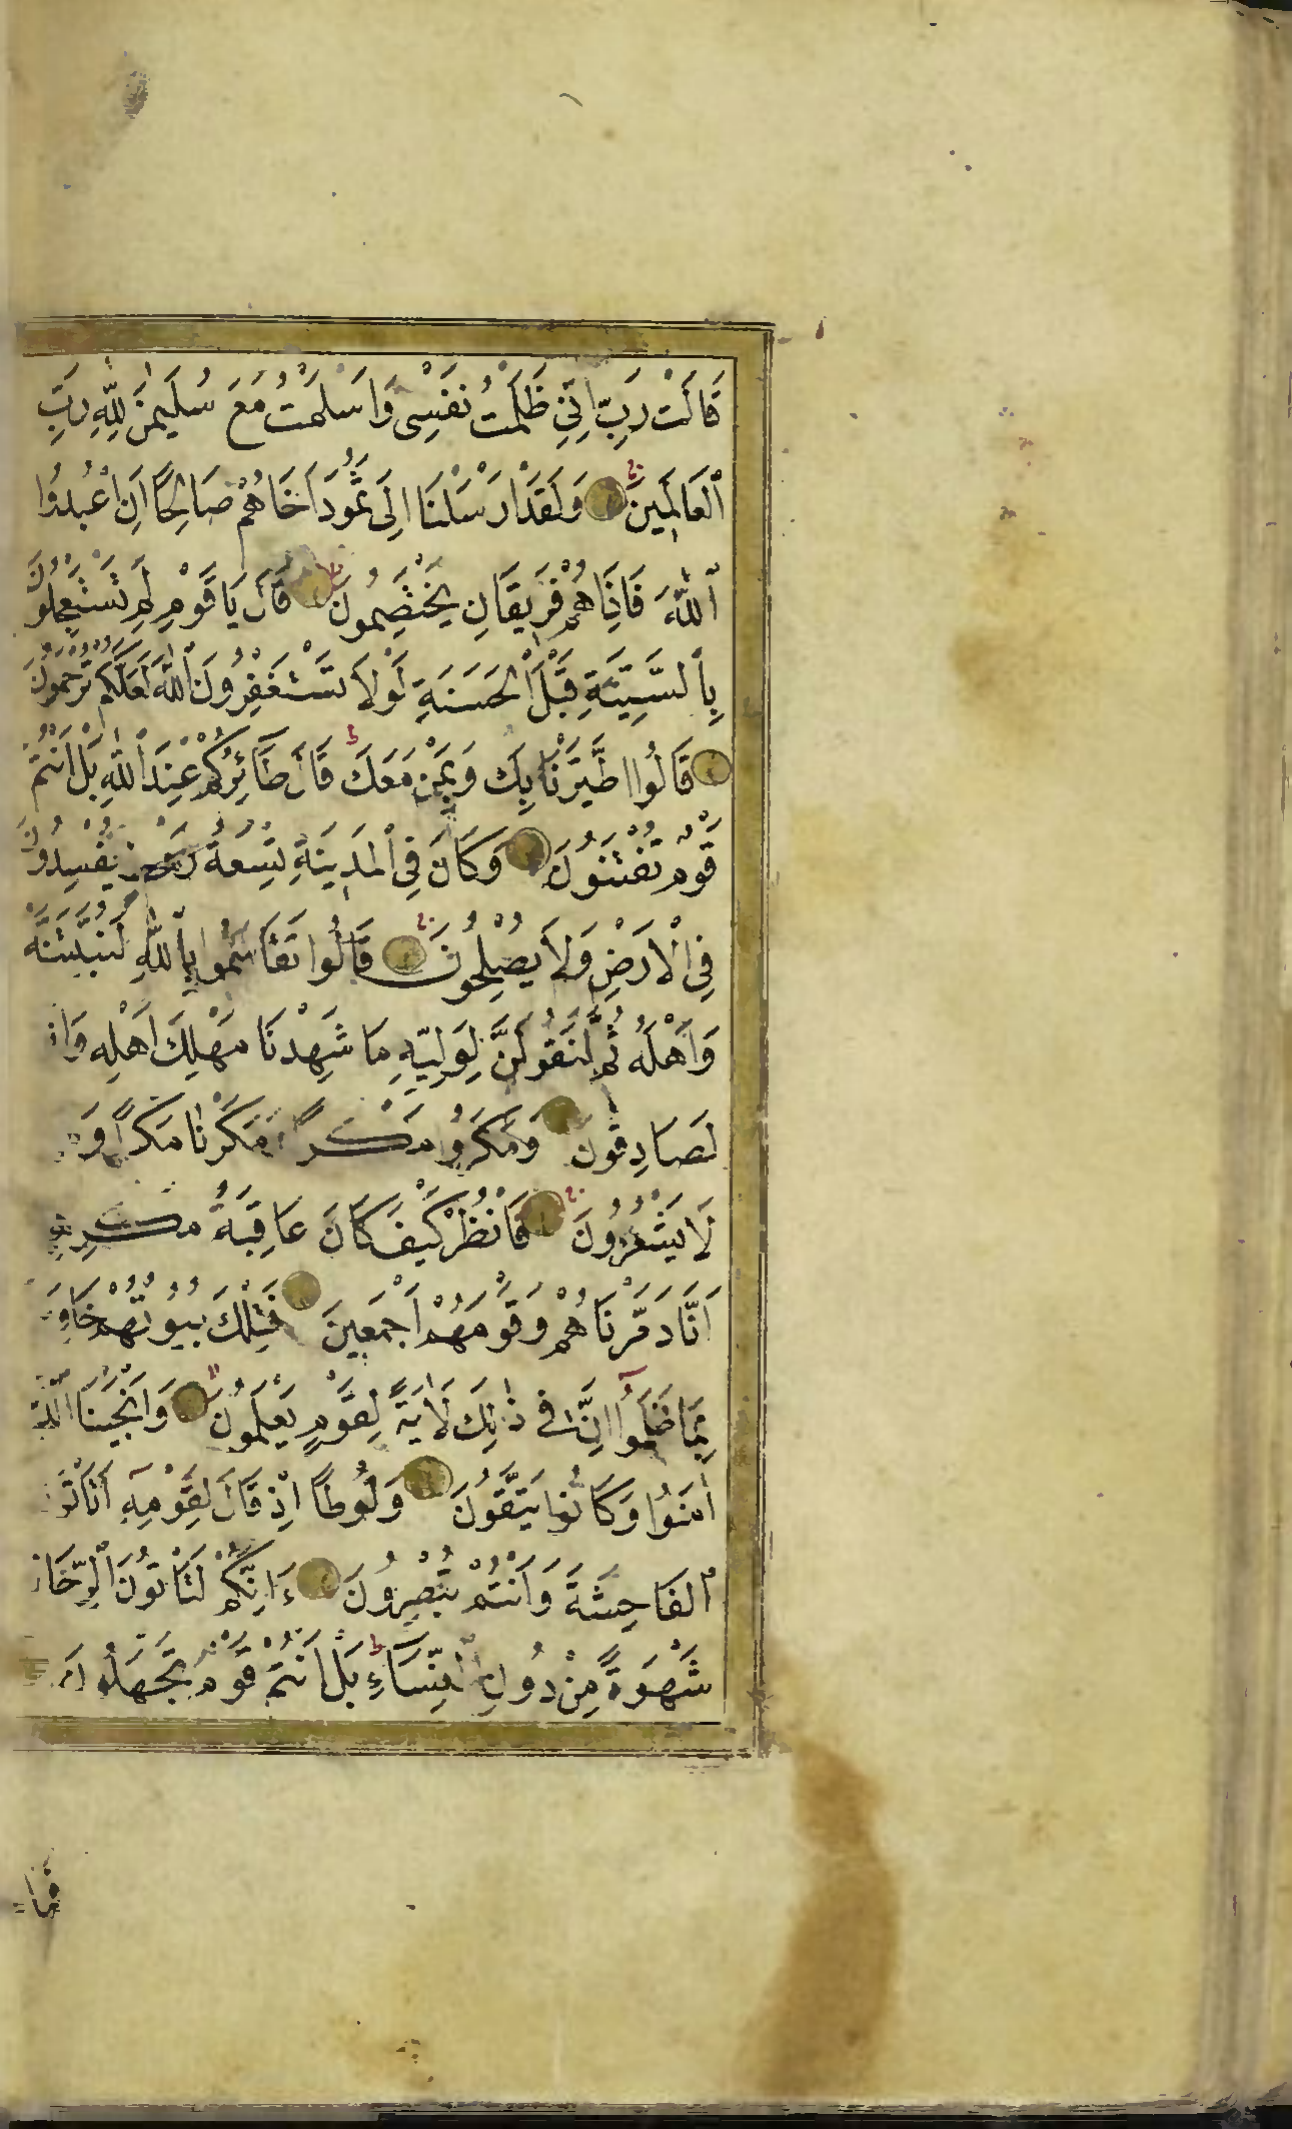 قَالَتْ رَبِّ اِنِّي ظَلَمْتُ نَفْسِى وَاَسْلَمْتُ مَعَ سُلَيْمٰنَ لِلّٰهِ رَبِّ
الْعَالَمِينَ وَلَقَدْ اَرْسَلْنَا اِلَى ثَمُودَ اَخَاهُمْ صَالِحًا اَنِ اعْبُدُوا
اللّٰهَ فَاِذَا هُمْ فَرِيقَانِ يَخْتَصِمُونَ قَالَ يَا قَوْمِ لِمَ تَسْتَعْجِلُونَ
بِالسَّيِّئَةِ قَبْلَ الْحَسَنَةِ لَوْلَا تَسْتَغْفِرُونَ اللّٰهَ لَعَلَّكُمْ تُرْحَمُونَ
قَالُوا اطَّيَّرْنَا بِكَ وَبِمَنْ مَعَكَ قَالَ طَائِرُكُمْ عِنْدَ اللّٰهِ بَلْ اَنْتُمْ
قَوْمٌ تُفْتَنُونَ وَكَانَ فِي الْمَدِينَةِ تِسْعَةُ يُفْسِدُونَ
فِي الْاَرْضِ وَلَا يُصْلِحُونَ قَالُوا تَقَاسَمُوا بِاللّٰهِ لَنُبَيِّتَنَّهُ
وَاَهْلَهُ ثُمَّ لَنَقُولَنَّ لِوَلِيِّهِ مَا شَهِدْنَا مَهْلِكَ اَهْلِهِ وَاِ
لَصَادِقُونَ وَمَكَرُوا مَكْرًا وَمَكَرْنَا مَكْرًا وَ
لَا يَشْعُرُونَ فَانْظُرْ كَيْفَ كَانَ عَاقِبَةُ مَكْرِهِ
اَنَّا دَمَّرْنَاهُمْ وَقَوْمَهُمْ اَجْمَعِينَ فَتِلْكَ بُيُوتُهُمْ خَاوِ
بِمَا ظَلَمُوا اِنَّ فِي ذٰلِكَ لَاٰيَةً لِقَوْمٍ يَعْلَمُونَ وَاَنْجَيْنَا الَّذِ
اٰمَنُوا وَكَانُوا يَتَّقُونَ وَلُوطًا اِذْ قَالَ لِقَوْمِهِ اَتَاْتُو
الْفَاحِشَةَ وَاَنْتُمْ تُبْصِرُونَ ءَاِنَّكُمْ لَتَاْتُونَ الرِّجَا
شَهْوَةً مِنْ دُونِ النِّسَاءِ بَلْ اَنْتُمْ قَوْمٌ تَجْهَلُونَ
فَمَا